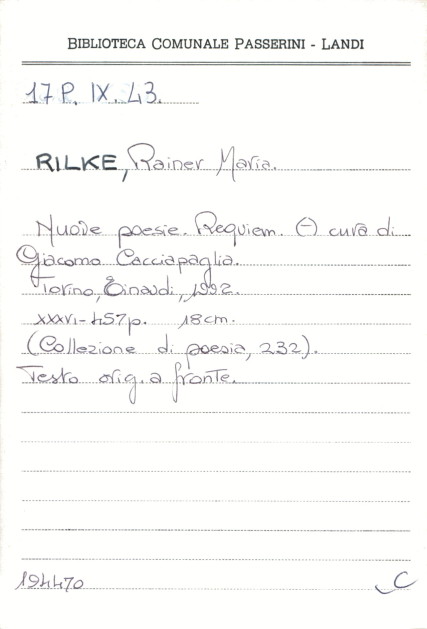 BIBLIOTECA COMUNALE PASSERINI - LANDI
17 P. IX. 43.
RILKE, Rainer Maria.
Nuove poesie. Requiem. A cura di
Giacomo Cacciapaglia.
Torino, Einaudi, 1992.
XXXVI-457p. 18cm.
(Collezione di poesia, 232).
Testo orig. a fronte.
194470
C